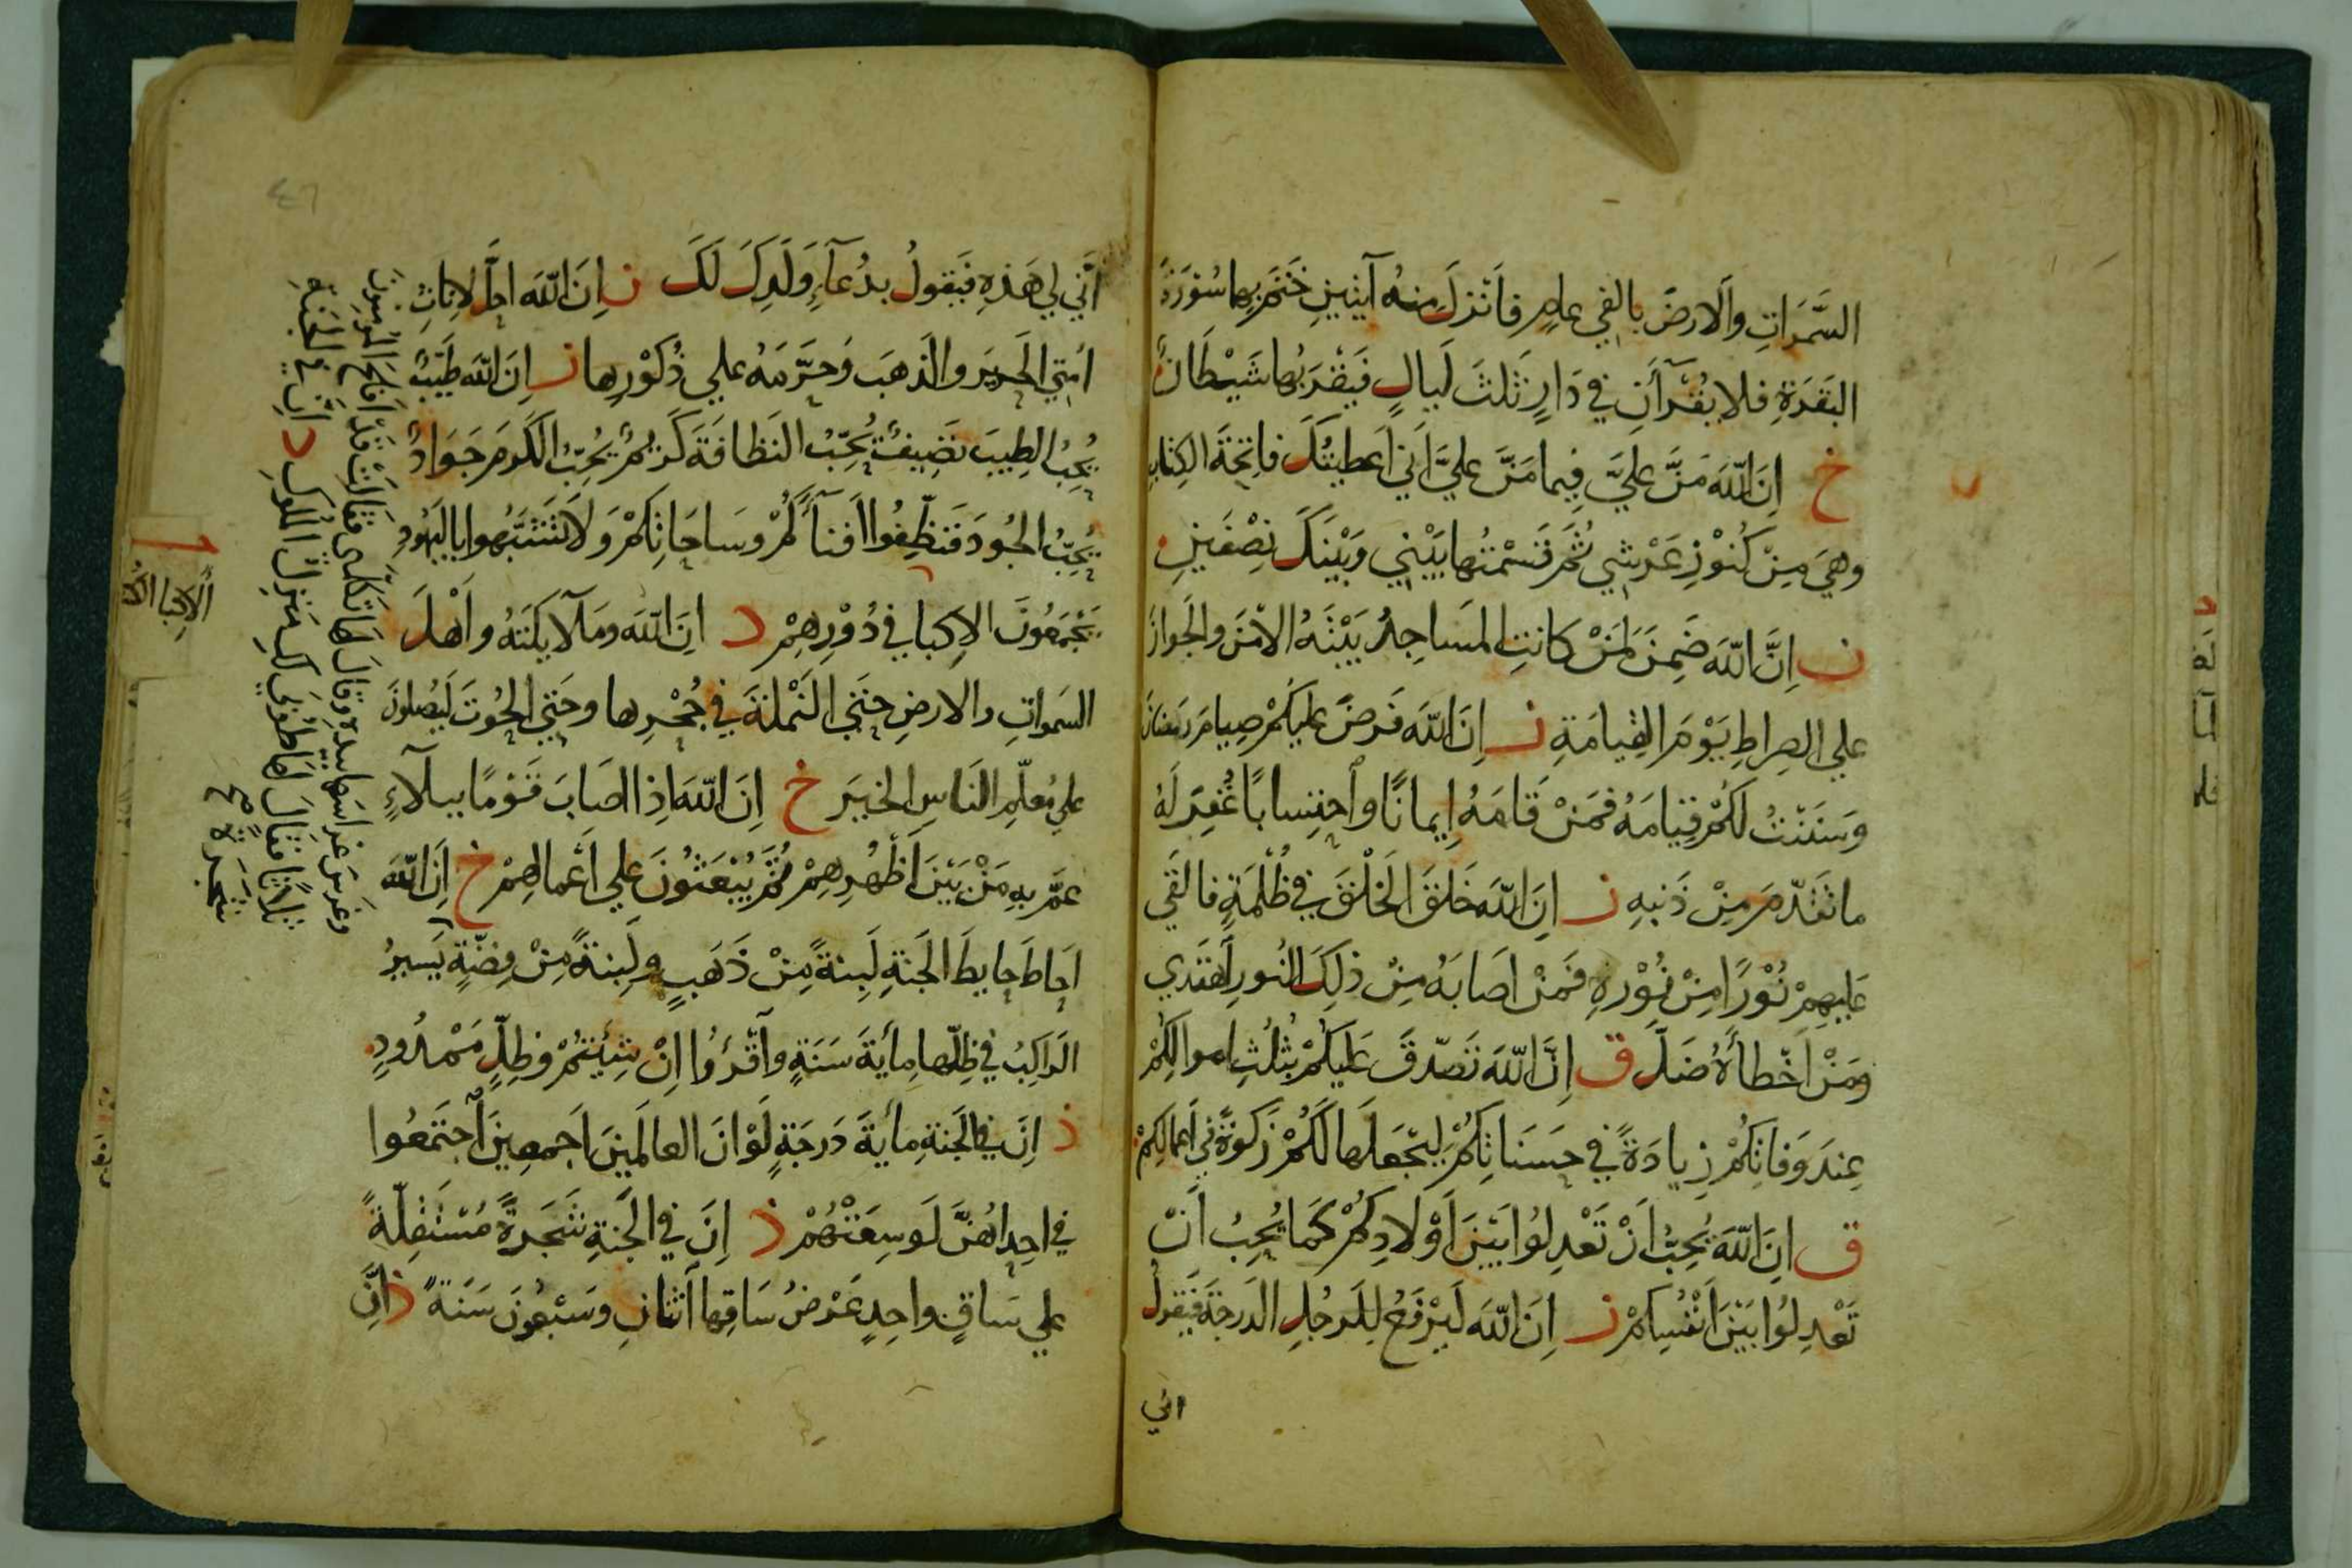 السَّمَوَاتِ وَالارضَ بالفي عامٍ فَاَنْزَلَ مِنهُ آيتينِ خَتَمَ بهما سُوْرَةَ
البَقَرَةِ فلا يُقْرَأَنِ في دَارٍ ثلثَ لَيالٍ فَيَقْرَبُها شَيْطَانٌ
خ اِنَّ اللّهَ مَنَّ عليَّ فِيما مَنَّ عليَّ اَنّي اَعطيتُكَ فاتِحَةَ الكِتابِ
وهيَ مِنْ كُنُوْزِ عَرْشي ثُمَّ قَسَمْتُها بَيْنِي وَبَيْنَكَ نِصْفَينِ
ن اِنَّ اللّهَ ضَمِنَ لِمَنْ كانتِ المَساجِدُ بَيْتَهُ الاَمْنَ والجَوازَ
علي الصِراطِ يَوْمَ القِيامَةِ ن اِنَّ اللّهَ فَرضَ عليكُمْ صِيامَ رَمَضَانَ
وَسَنَنْتُ لكُمْ قِيَامَهُ فمَنْ قَامَهُ اِيمانًا واحتِسابًا غُفِرَ لَهُ
ما تَقَدّمَ مِنْ ذَنبِهِ ن اِنَّ اللّهَ خَلقَ الخَلْقَ في ظُلْمَةٍ فالقَي
عَليهِمْ نُوْرًا مِنْ نُوْرِهِ فَمَنْ اَصَابَهُ مِنْ ذلِكَ النُورِ اَهتَدي
وَمَنْ اَخْطأَهُ ضَلَّ ق اِنَّ اللّهَ تَصَدّقَ عَليكُمْ بِثُلُثِ اموالِكُمْ
عِندَ وَفَاتِكُمْ زِيادَةً في حَسَنَاتِكُمْ لِيَجْعَلَها لَكُمْ زَكوةً في اَعمالِكمْ
ق اِنَّ اللّهَ يُحِبُّ اَنْ تَعْدِلُوا بَيْنَ اَوْلادِكُمْ كَمَا يُحِبُّ اَنْ
تَعْدِلُوا بَيْنَ اَنْفُسِكمْ ن اِنَّ اللّهَ لَيَرْفَعُ لِلرَجُلِ الدَرجَةَ فَيَقولُ
اني
٤٦
اَنّي لي هَذِهِ فَيَقولُ بدُعآءِ وَلَدِكَ لَكَ ن اِنَّ اللّهَ احلَّ لاِناثِ
اُمَتِي الحَرِيرَ والذَهَبَ وَحَرَّمَهُ علي ذُكُوْرِها ن اِنَّ اللّهَ طَيّبٌ
يُحِبُّ الطِيبَ نَضِيفٌ يُحِبُّ النَظافَةَ كَريمٌ يُحِبُّ الكَرمَ جَوَادٌ
يُحِبُّ الجُودَ فَنظِّفُوا اَفناءَكُمْ وسَاحَاتِكمْ وَلا تَتَشَبَّهوا باليَهُودِ
يَجْمَعُونَ الاِكبا في دُوْرِهِمْ د اِنَّ اللّهَ ومَلآئكَتَهُ واَهْلَ
السَمواتِ والارضِ حتَي النَمْلةَ في جُحْرِها وحَتي الحُوتَ لَيُصلونَ
علي مُعلّمِ النَاسِ الخيرَ خ اِنَّ اللّهَ اِذا اصَابَ قَوْمًا بِبلآءٍ
عمَّ بِهِ مَنْ بَيْنَ اَظْهُرِهِمْ ثُمَّ يُبْعَثُونَ علي اَعْمالِهِمْ خ اِنَّ اللّهَ
اَحاطَ حايطَ الجَنةِ لَبِنةً مِنْ ذَهَبٍ ولَبِنةً مِنْ فِضّةٍ يَسيرُ
الرَاكِبُ في ظِلّها مِأيةَ سَنَةٍ واَقْرَؤُا اِنْ شِئتُمْ وظِلٍّ مَمْدُودٍ
ذ اِنَّ في الجَنةِ مأيَةَ دَرجَةٍ لَوْ اَنَّ العالَمِينَ اَجمعِينَ اَجتَمَعُوا
في اِحداهُنَّ لَوسِعَتْهُمْ ذ اِنَّ في الجَنةِ شَجَرَةً مُسْتَقِلّةً
علي سَاقٍ واحِدٍ عَرْضُ سَاقِها اَثنانِ وسَبْعُونَ سَنَةً ذ اِنَّ
وغرسَ غراسَها بيده وقالَ لها تَكلمي فقالت قدْ اَفلَحَ المُؤمنونَ
ثلاثًا فقالَ لها طُوبَي لكِ مَنزلَ المُلوكِ د اِنَّ في الجَنةِ
شَجَرَةً صح
الاِكبا